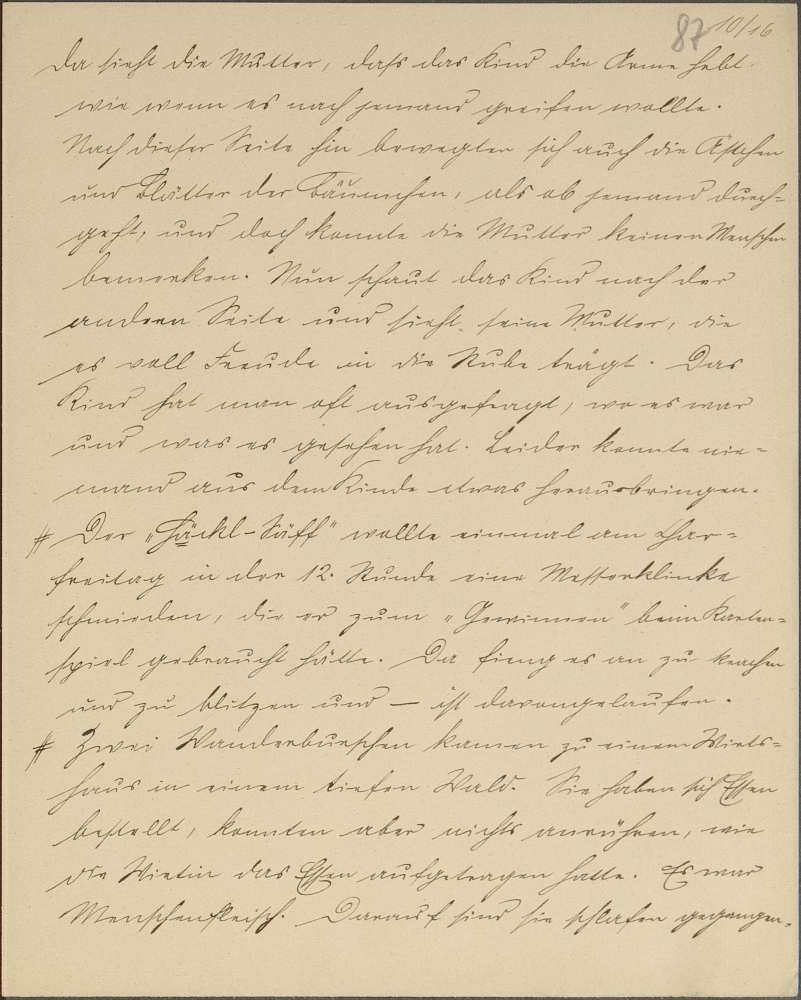 87 10/16
Da sieht die Mutter, dass das Kind die Arme hebt
wie wenn es nach jemand greifen wollte.
Nach dieser Seite hin bewegten sich auch die Ästchen
und Blätter der Bäumchen, als ob jemand durch-
geht, und doch konnte die Mutter keinen Menschen
bemerken. Nun schaut das Kind nach der
andern Seite und sieht seine Mutter, die
es voll Freude in die Stube trägt. Das
Kind hat man oft ausgefragt, wo es war
und was es gesehen hat. Leider konnte nie-
mand aus dem Kinde etwas herausbringen.
# Der „Häckl-Säff" wollte einmal am Char-
freitag in der 12. Stunde eine Messerklinke
schmieden, die er zum „Gewinnen" beim Karten-
spiel gebraucht hätte. Da fieng es an zu krachen
und zu blitzen und — ist davongelaufen.
# Zwei Wanderburschen kamen zu einem Wirts-
haus in einem tiefen Wald. Sie haben sich Essen
bestellt, konnten aber nichts anrühren, wie
die Wirtin das Essen aufgetragen hatte. Es war
Menschenfleisch. Darauf sind sie schlafen gegangen.